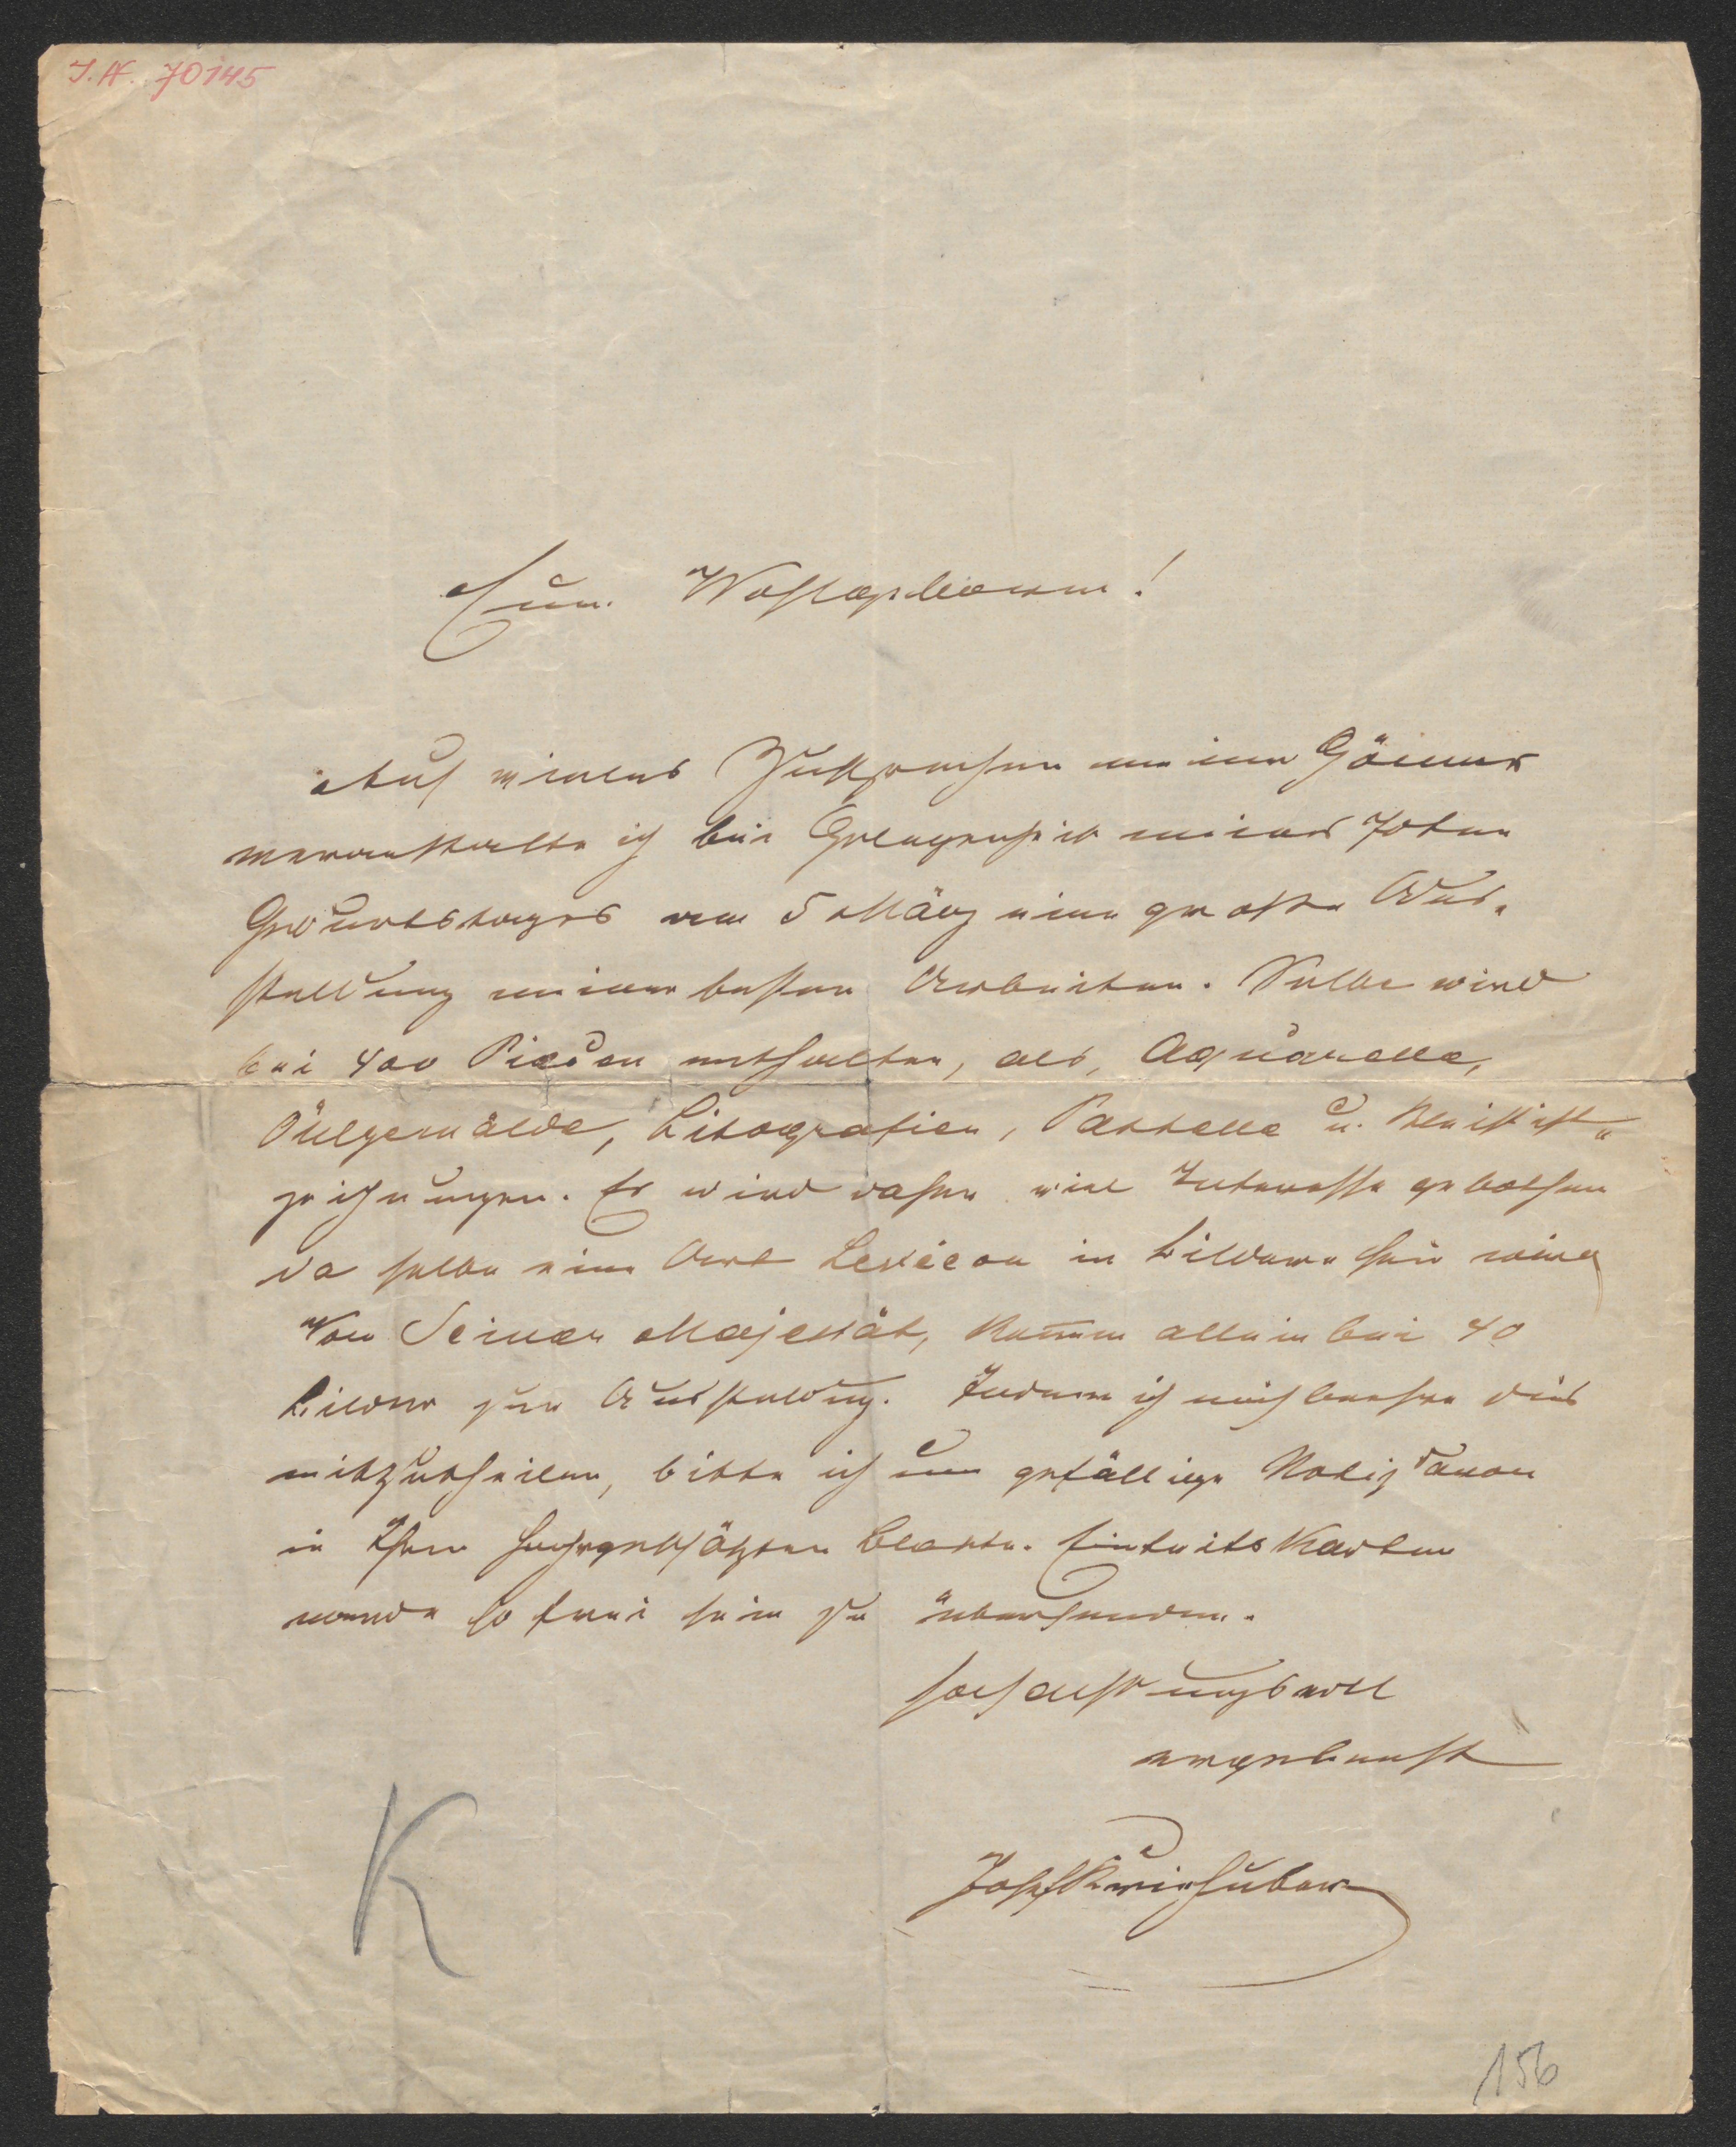 I.N. 70145
Euer Wohlgeboren!
Auf vieles Zusprechen meiner Gönner
veranstalte ich bei Gelegenheit meines 70ten
Geburtstages am 5 März eine große Aus-
stellung meiner besten Arbeiten. Selbe wird
bei 400 Piecen enthalten, als, Aquarelle,
Öhlgemälde, Litografien, Pastelle u. Bleistift-
zeichnungen. Es wird daher viel Interesse gebothen
da selbe eine Art Lexicon in Bildern sein wird
Von Seiner Majestät, kommen allein bei 40
Bilder zur Ausstellung. Indem ich mich beehre dies
mitzutheilen, bitte ich um gefällige Notiz davon
in Ihren hochgeschätzten Blatte. Eintrits Karten
werde so frei sein zu übersenden.
hochachtungsvoll
ergebenst
Josef Kriehuber
K
156